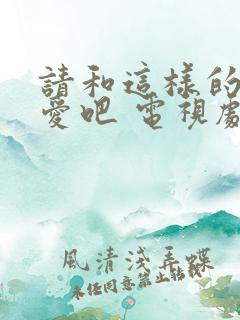 請和這樣的
愛吧 電視劇
風清淺弄蝶
未經同意禁止轉載